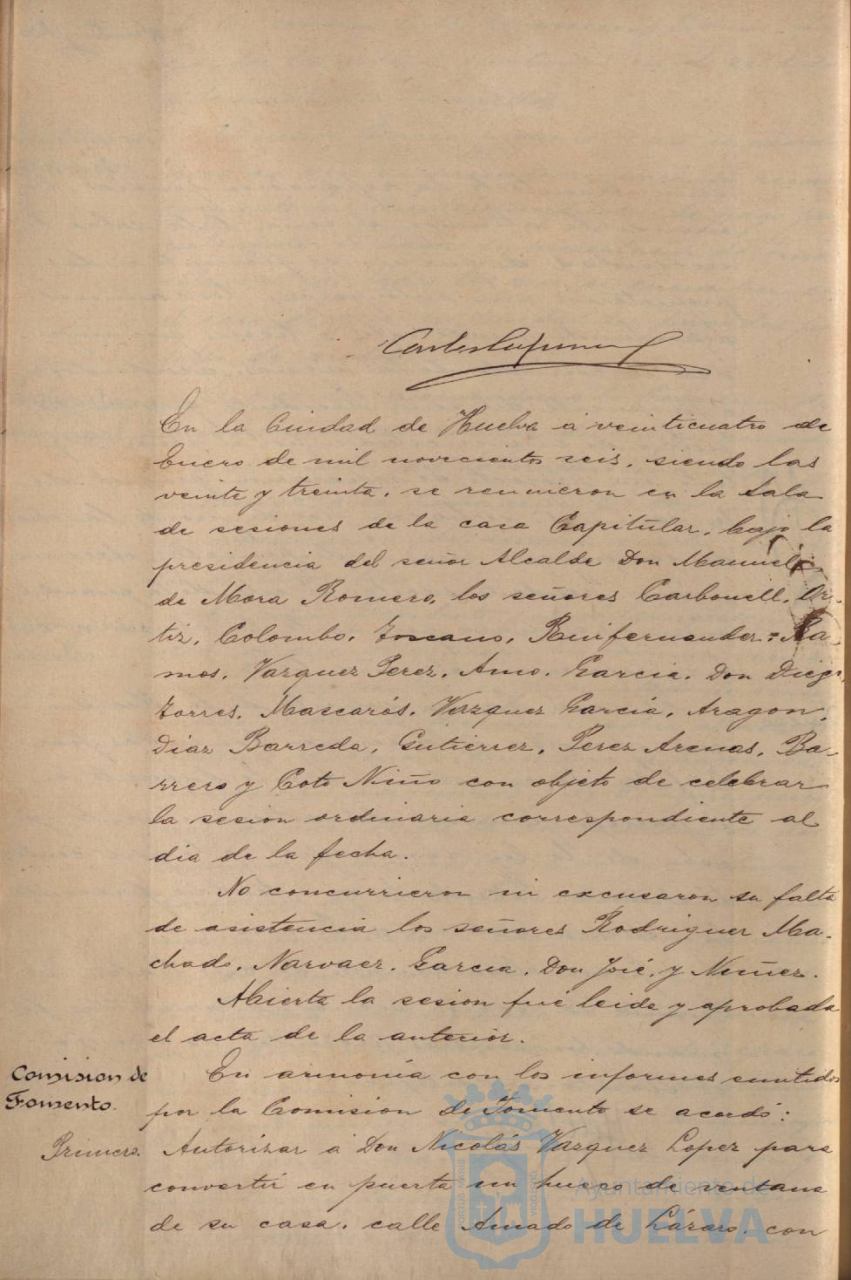 En la Ciudad de Huelva á veinticuatro de
Enero de mil novecientos seis, siendo las
veinte y treinta, se reunieron en la Sala
de sesiones de la casa Capitular, bajo la
presidencia del señor Alcalde Don Manuel
de Mora Romero, los señores Carbonell, Or-
tiz, Colombo, Toscano, Ruifernandez, Ra-
mos, Vazquez Perez, Amo, Garcia, Don Diego,
Torres, Mascarós, Vazquez Garcia, Aragon,
Diaz Barreda, Gutierrez, Perez Arenas, Ba-
rrero y Coto Niño con objeto de celebrar
la sesion ordinaria correspondiente al
dia de la fecha.
No concurrieron ni excusaron su falta
de asistencia los señores Rodriguez Ma-
chado, Narvaez, Garcia, Don José, y Nuñez.
Abierta la sesion fué leida y aprobada
el acta de la anterior.
Comision de
Fomento.
En armonía con los informes emitidos
por la Comision de Fomento se acordó:
Primero.
Autorizar á Don Nicolás Vazquez Lopez para
convertir en puerta un hueco de ventana
de su casa, calle Amado de Lázaro, con
Ayuntamiento de
HUELVA